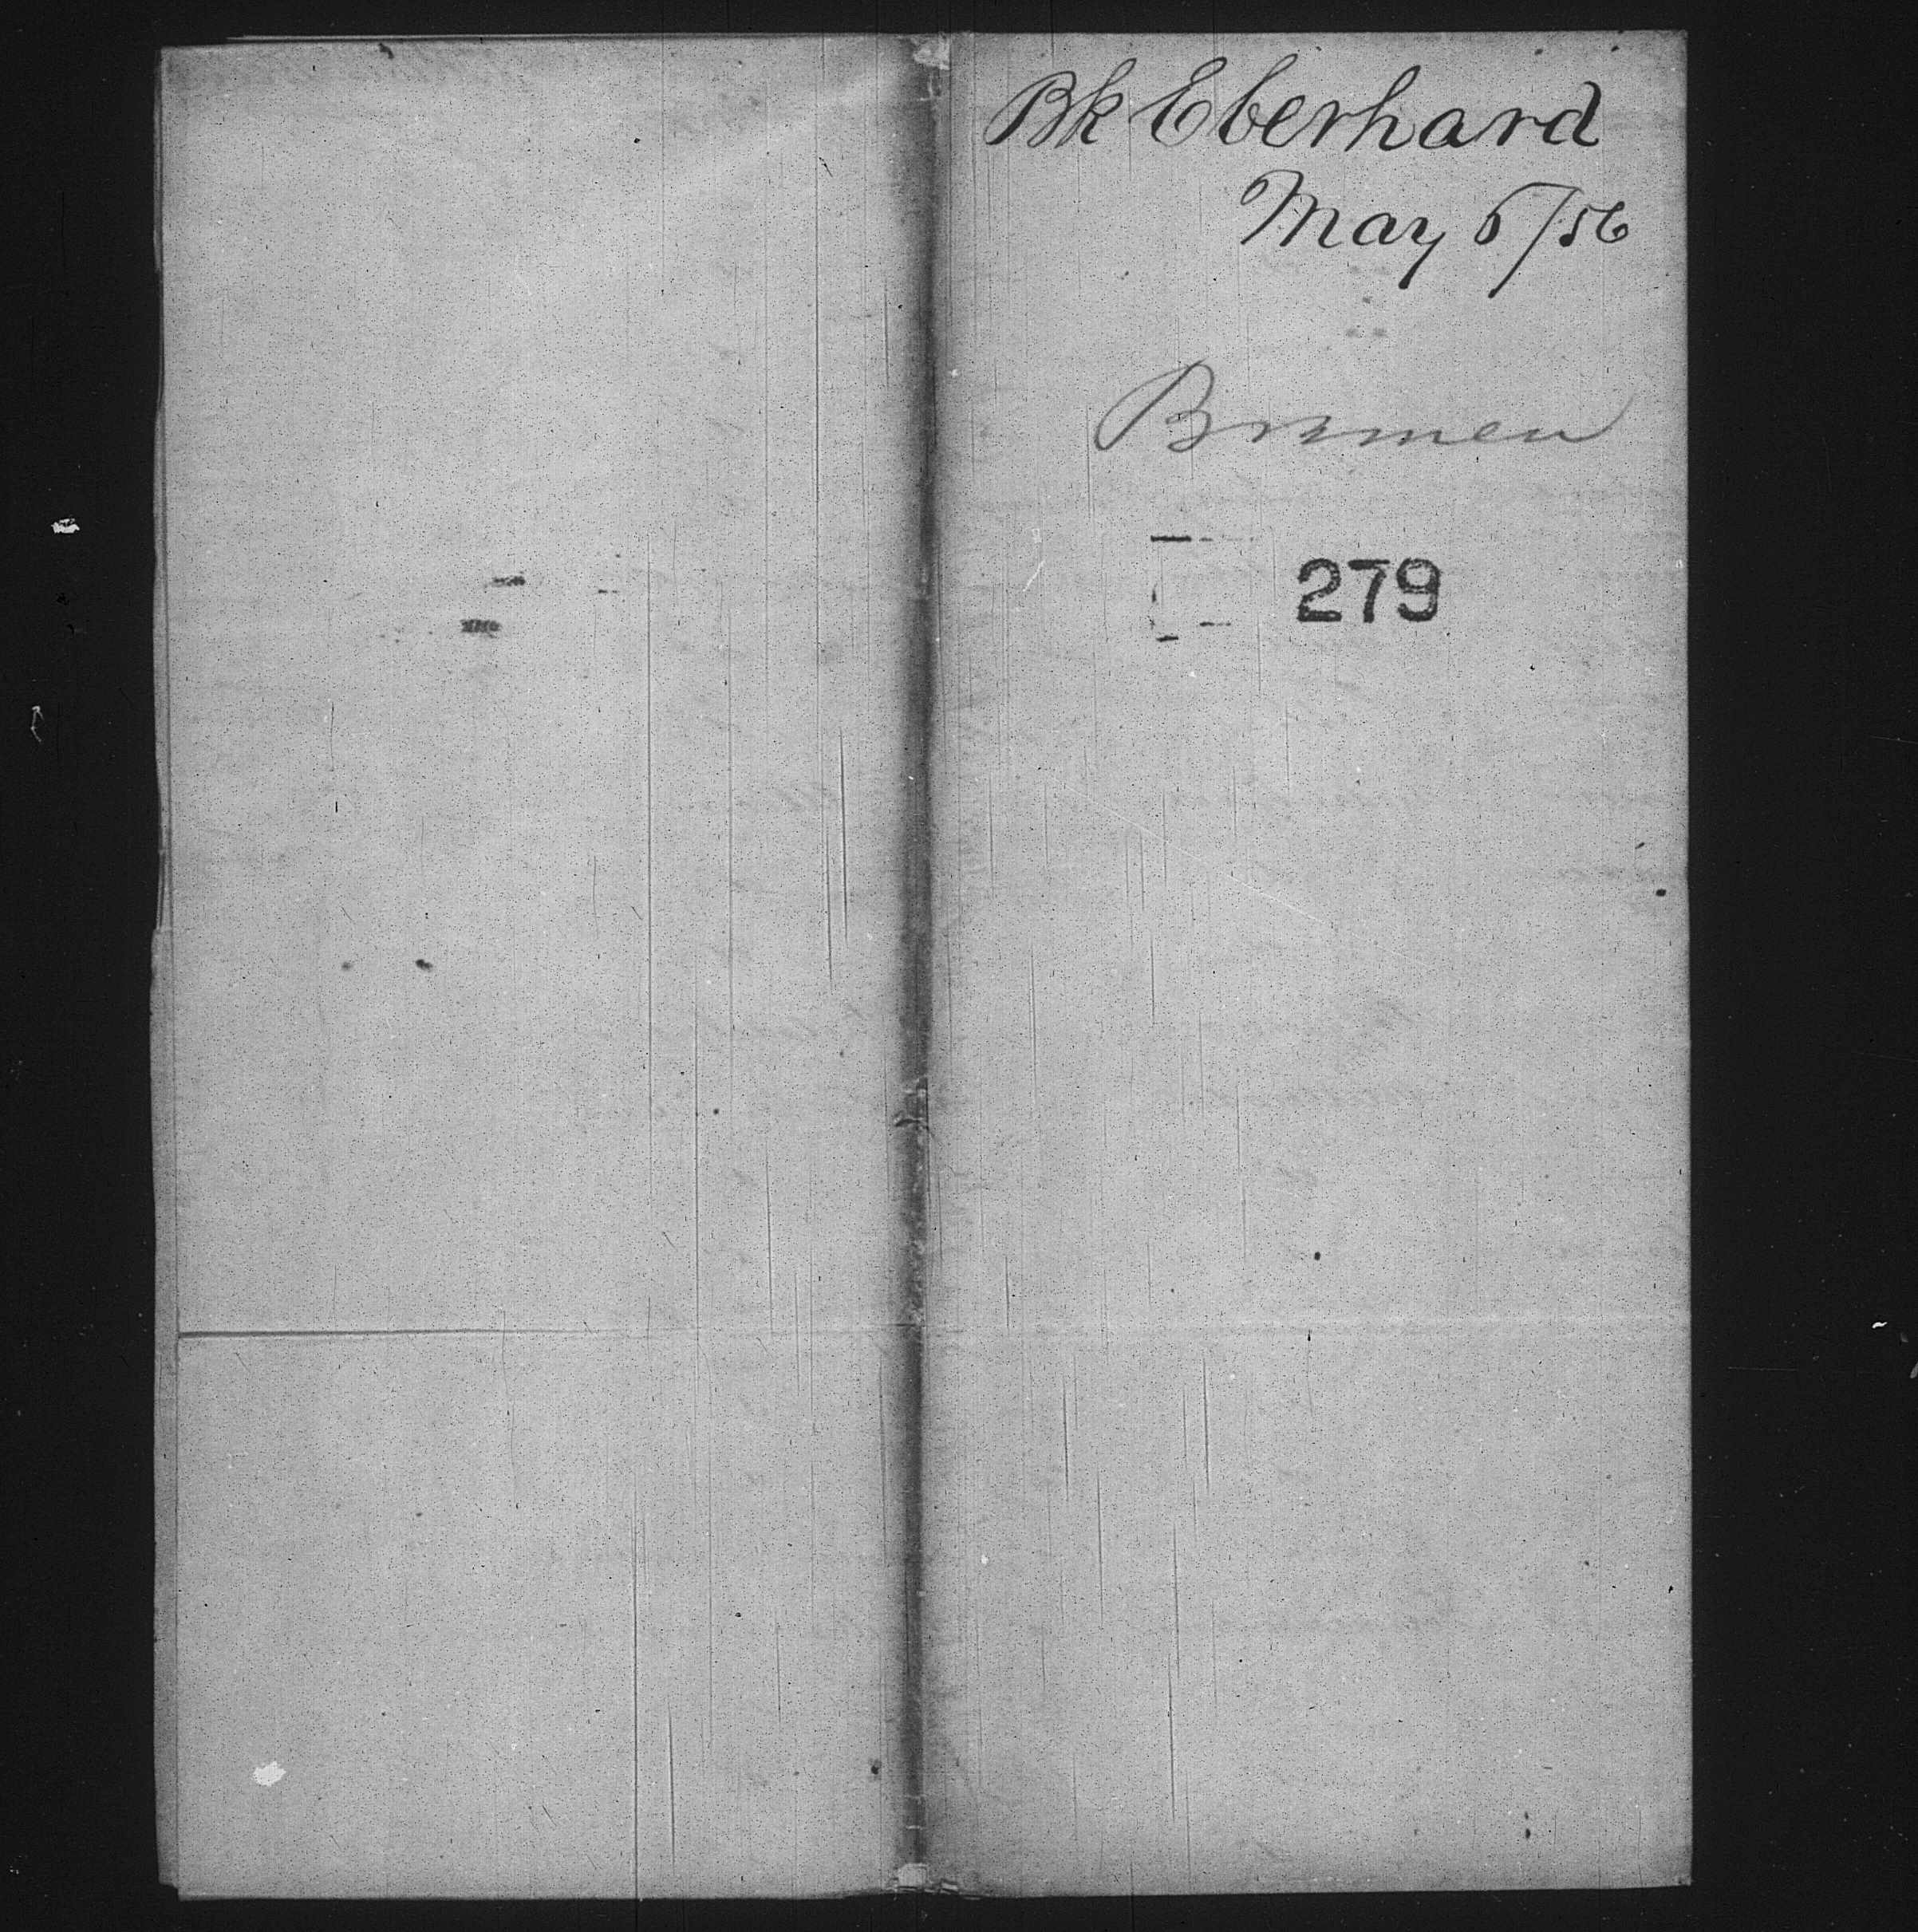 Bk Eberhard
May 5/56
Bremen
279